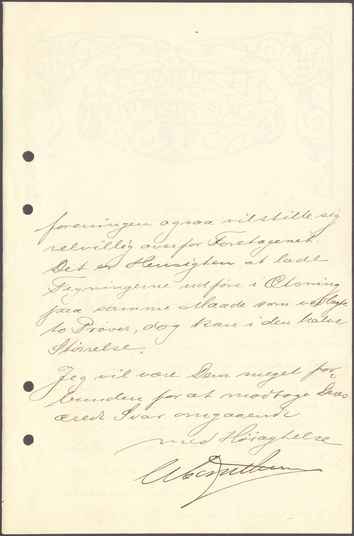 foreningen ogsaa vil stille sig
velvillig overfor Foretagenet.
Det er Hensigten at lade
Tegningerne udføre i Ætsning
paa samme Maade som vedlagte
to Prøver, dog kun i den halve
Størrelse.
Jeg vil være Dem meget for-
bunden for at modtage Deres
ærede Svar omgaaende
med Højagtelse